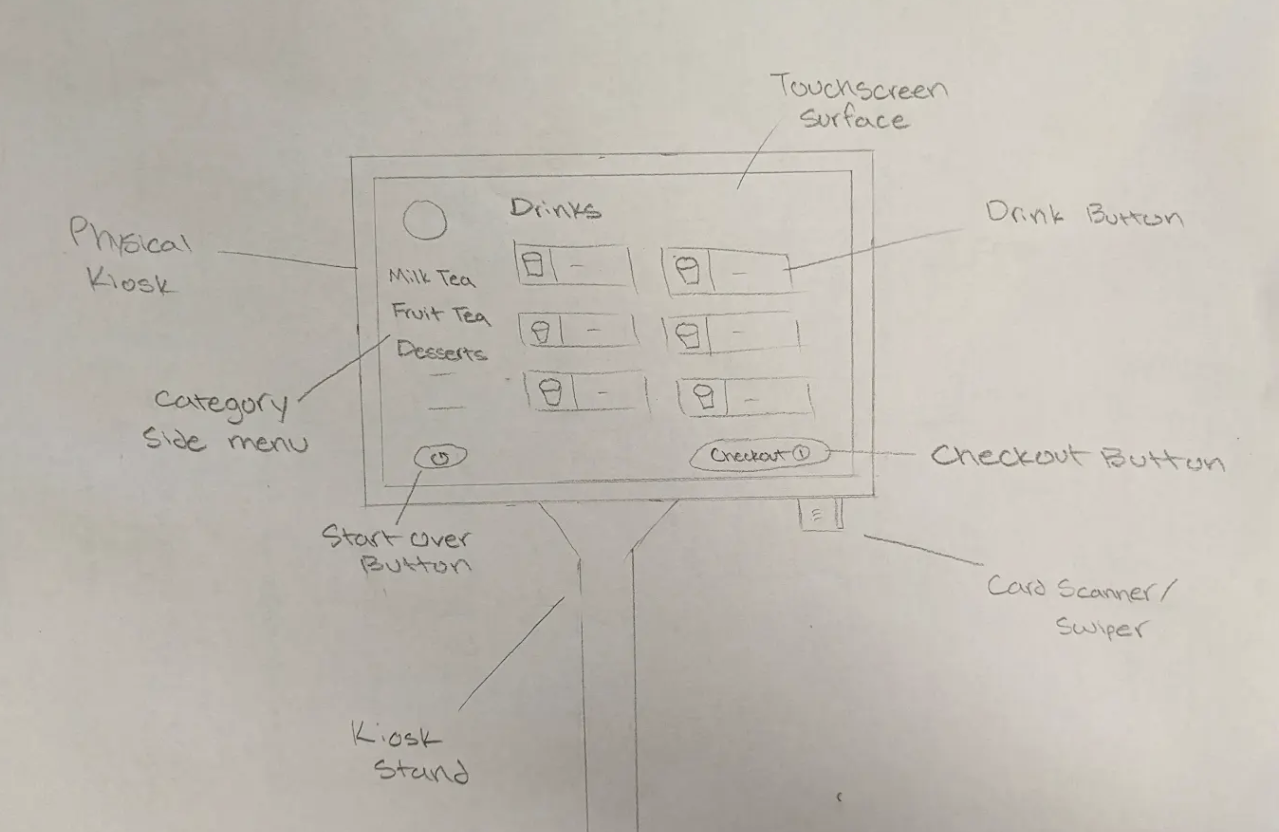 Touchscreen
Surface
Physical
Kiosk
Drinks
Drink Button
Milk Tea
Fruit Tea
Desserts
Category
Side menu
Checkout 1
Checkout Button
Start over
Button
Card Scanner/
Swiper
Kiosk
Stand